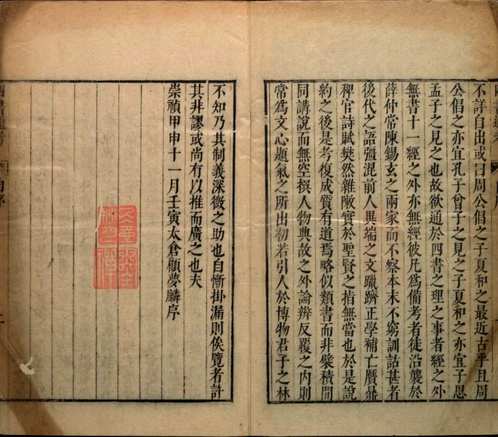 不詳自出或曰周公倡之子夏和之最近古乎且周
公倡之亦宜孔子曾子之見之子夏和之亦宜子思
孟子之見之也故欲通於四書之理之事者經之外
無書十一經之外亦無經彼凡爲備考者徒沿襲於
薛仲常陳錫玄之兩家而不察本末不窮訓詁甚者
後代之語強混前人異端之文躐躋正學補亡贋鼎
稗官詩賦樊然雜陳實於聖賢之指無當也於是說
約之後是考復成質有道焉略似類書而非襞積閒
同講說而無空撰人物典故之外論辨反覆之内則
常爲文心題氣之所出物若引人於博物君子之林
不知乃其制義深微之助也自慚掛漏則俟覽者計
其非謬或尚有以推而廣之也夫
崇禎甲申十一月壬寅太倉顧夢麟序